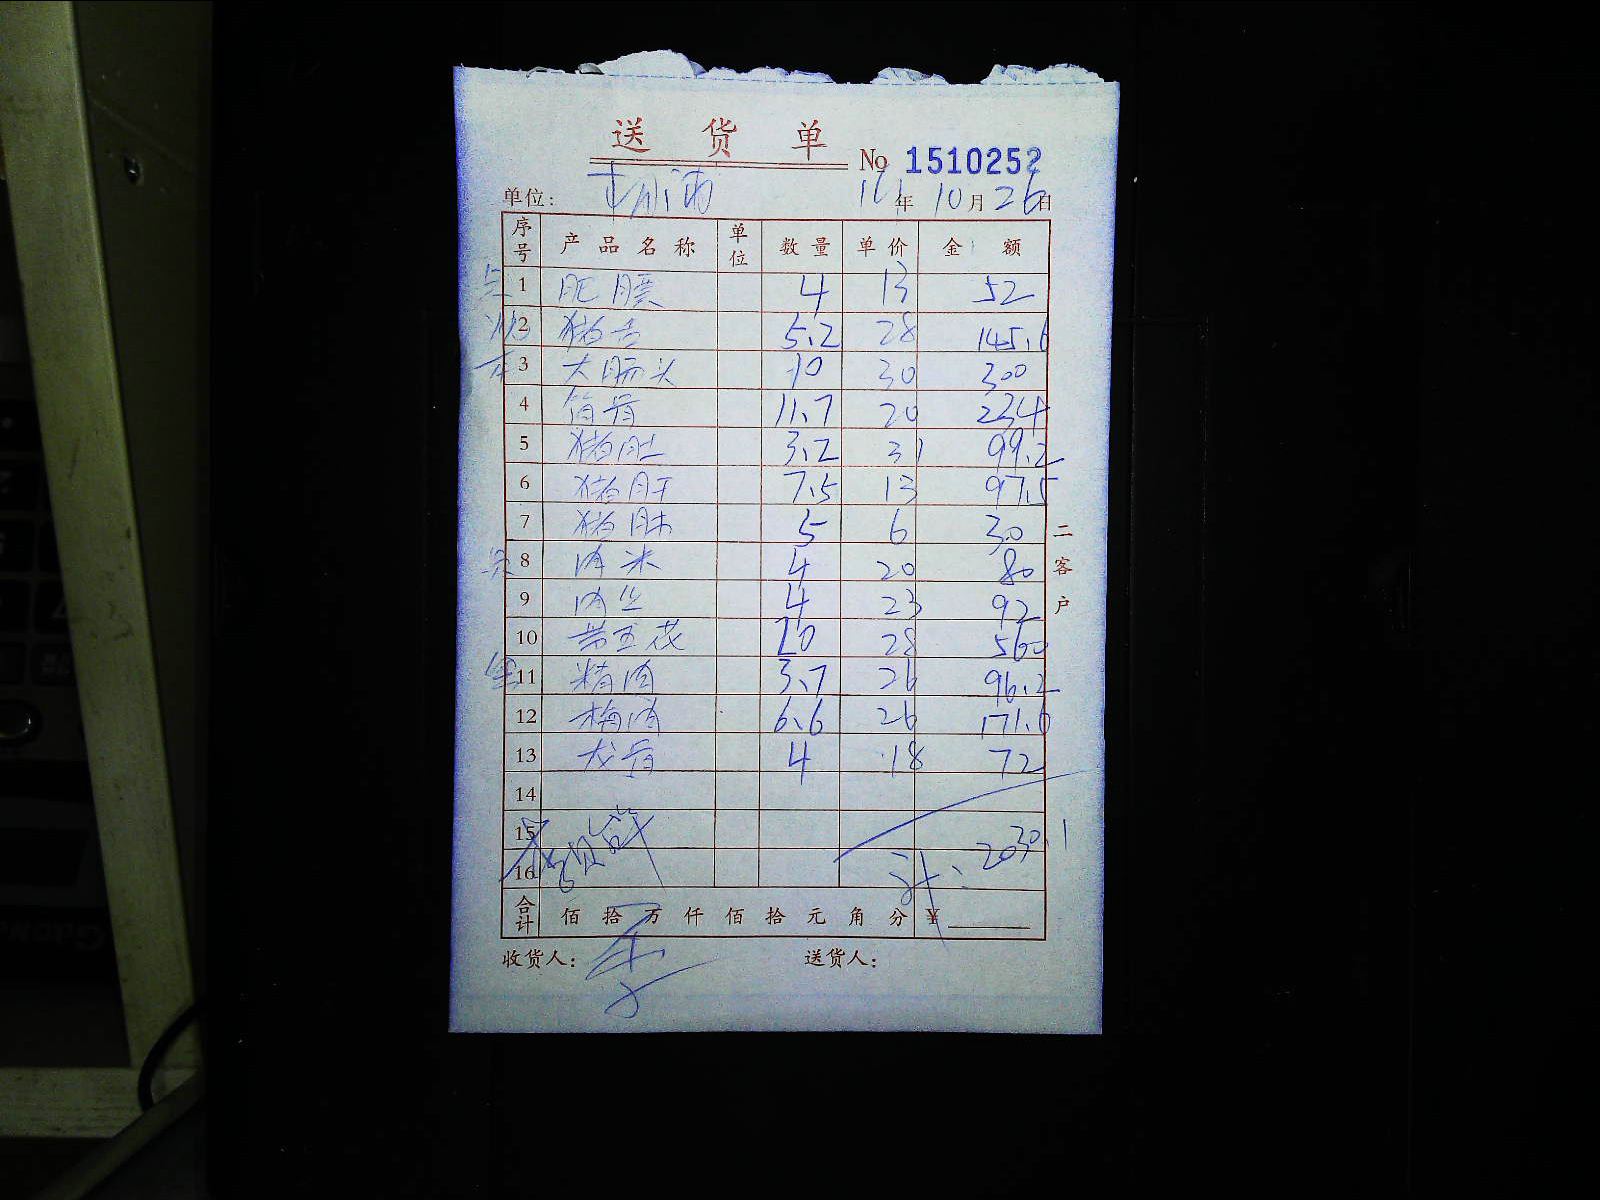 送货单 No 1510252
单位: 年10月26日
序号 产品名称 单位 数量 单价 金额
1 肥膘 4 13 52
2 猪舌 5.2 28 145.6
3 大肠头 10 30 300
4 筒骨 11.7 20 234
5 猪肚 3.2 31 99.2
6 猪肝 7.5 13 97.5
7 猪 5 6 30
8 肉米 4 20 80
9 肉丝 4 23 92
10 带五花 20 28 560
11 精肉 3.7 26 96.2
12 梅肉 6.6 26 171.6
13 龙骨 4 18 72
14
15
16
计: 2030.1
合计 佰拾万仟佰拾元角分 ¥
收货人: 送货人:
二客户